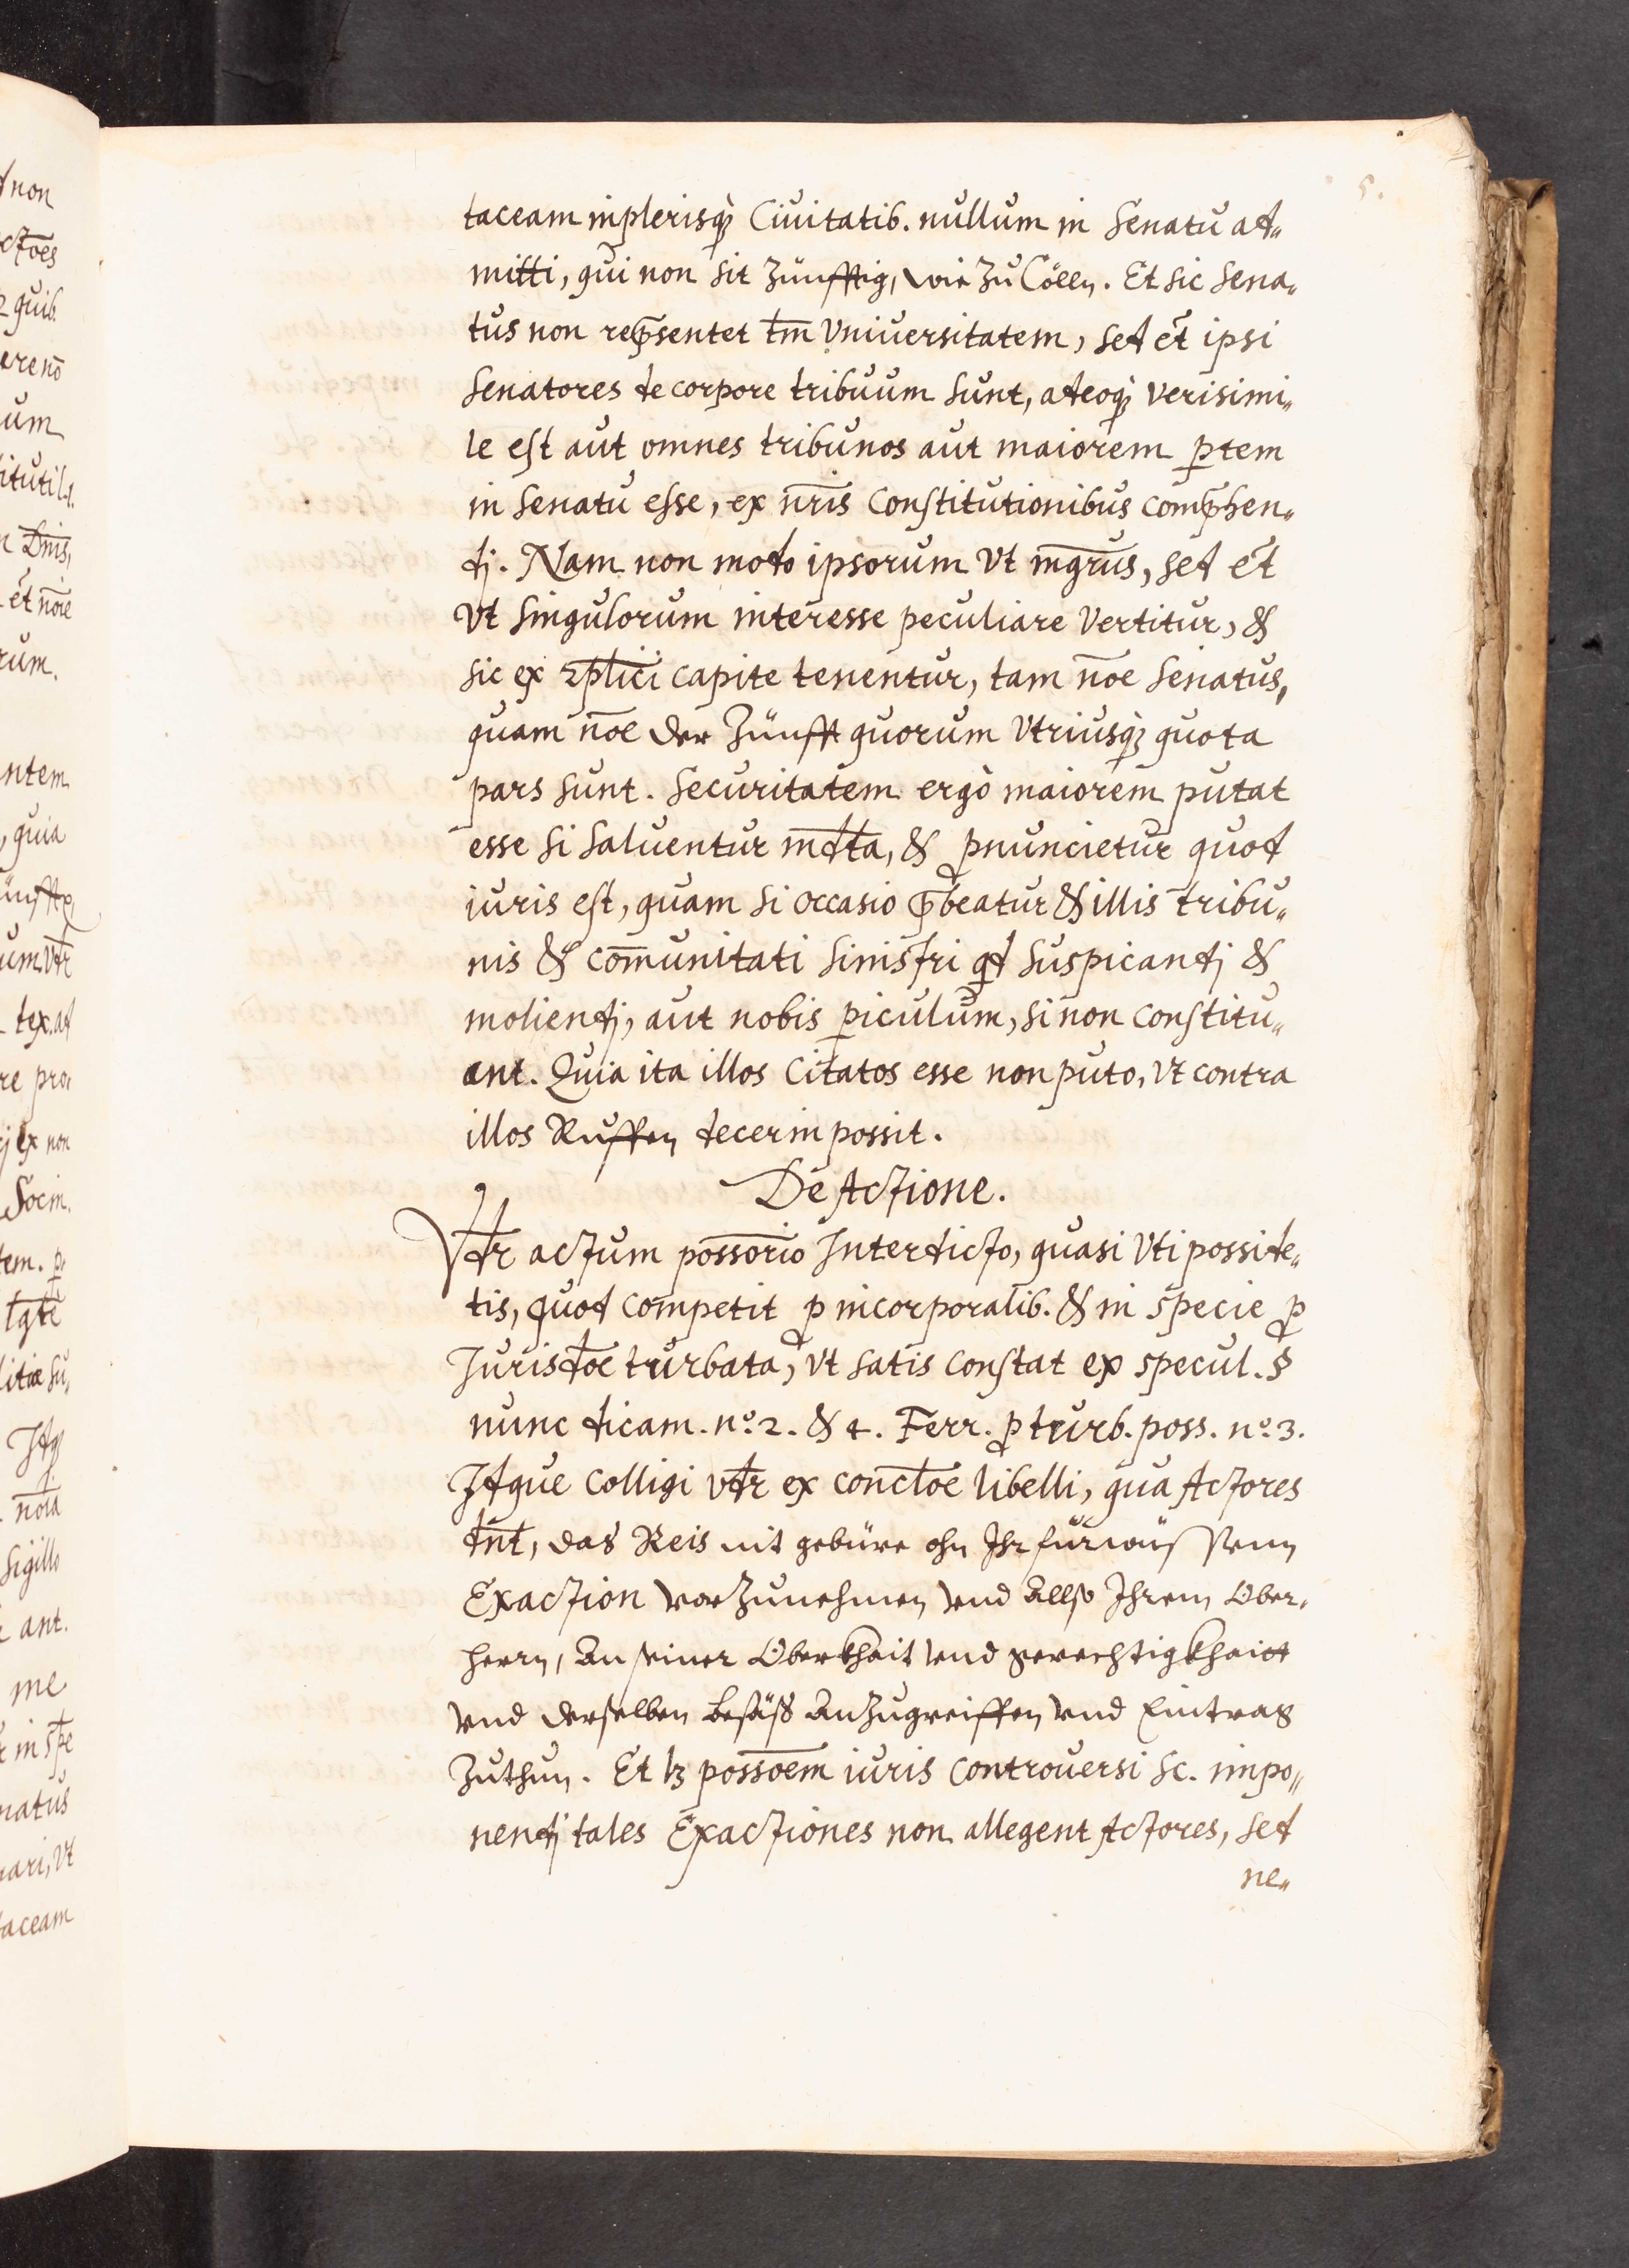 5.
taceam in plerisq̀ꝫ Ciuitatib. nullum in Senatu ad„
mitti, qui non sit Zünfftig, wie Zu Cölln. Et sic Sena„
tus non rep̄sentet tm̄ Vniuersitatem, sed et̄ ipsi
Senatores de corpore tribuum sunt, adeoq̀ꝫ verisimi„
le est aut omnes tribunos aut maiorem ꝑtem
in Senatu esse, ex nr̄is Constitutionibus comp̄hen„
dj. Nam non modo ipsorum Vt mgr̄us, sed et̄
Vt singulorum interesse peculiare Vertitur, &
sic ex 2plīci capite tenentur, tam nōe Senatus,
quam nōe der Zünfft quorum Vtriusq̀ꝫ quota
pars sunt. Securitatem ergò maiorem putat
esse si saluentur md̄ta, & ꝓnuncietur quod
iuris est, quam si occasio p̄beatur & illis tribu„
nis & com̄unitati sinistri qd suspicandj &
moliendj, aut nobis ꝑiculum, si non constitu„
ant. Quia ita illos Citatos esse non puto, Vt contra
illos Ruffen decerni possit.
De Actione.
Vdr̄ actum possōrio Interdicto, quasi Vti posside„
tis, quod competit ꝓ incorporalib. & in specie ꝓ
Jurisdōe turbata, Vt satis constat ex specul. §
nunc dicam. nº. 2. & 4. Ferr. ꝓ turb. poss. nº. 3.
Idque colligi vdr̄ ex conclōe libelli, qua Actores
dn̄t, das Reis nit gebüre ohn Ihr fürwissenn
Exaction vorZunehmen vnd allso Ihrem Ober„
herrn, an seiner Oberkhait vnd gerechtigkhaidt
vnd derselben besäß anZugreiffen vnd Eintrag
Zuthun. Et lꝫ possōem iuris controuersi sc. impo„
nendj tales Exactiones non allegent Actores, sed
ne„